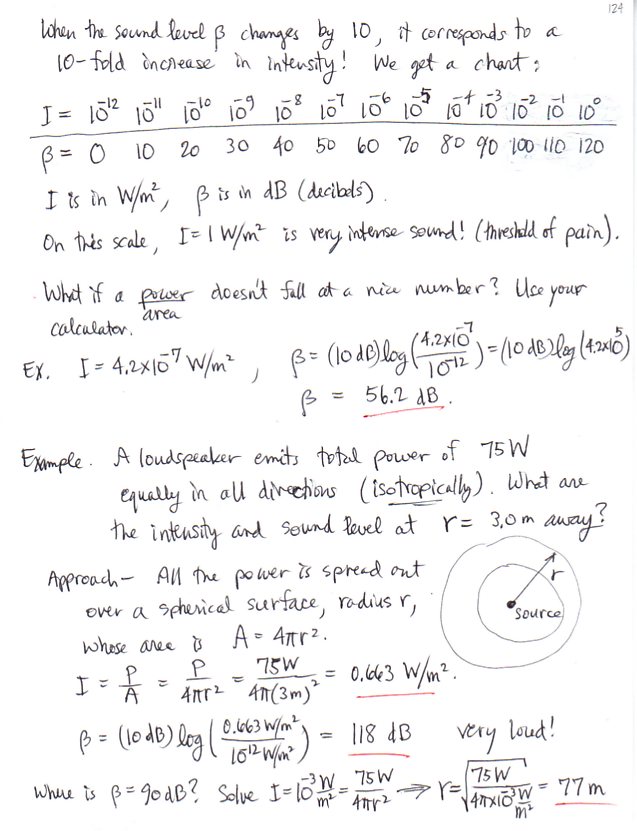 124
When the sound level β changes by 10, it corresponds to a
10-fold increase in intensity! We get a chart:
I = 10⁻¹² 10⁻¹¹ 10⁻¹⁰ 10⁻⁹ 10⁻⁸ 10⁻⁷ 10⁻⁶ 10⁻⁵ 10⁻⁴ 10⁻³ 10⁻² 10⁻¹ 10⁰
β = 0 10 20 30 40 50 60 70 80 90 100 110 120
I is in W/m², β is in dB (decibels).
On this scale, I = 1 W/m² is very intense sound! (threshold of pain).
What if a power/area doesn't fall at a nice number? Use your
calculator.
Ex. I = 4.2×10⁻⁷ W/m², β = (10 dB) log(4.2×10⁻⁷/10⁻¹²) = (10 dB) log(4.2×10⁵)
β = 56.2 dB.
Example. A loudspeaker emits total power of 75W
equally in all directions (isotropically). What are
the intensity and sound level at r = 3.0 m away?
Approach – All the power is spread out
over a spherical surface, radius r,
whose area is A = 4πr².
r
source
I = P/A = P/4πr² = 75W/4π(3m)² = 0.663 W/m².
β = (10 dB) log(0.663 W/m²/10⁻¹² W/m²) = 118 dB very loud!
Where is β = 90 dB? Solve I = 10⁻³ W/m² = 75W/4πr² → r = √(75W/4π×10⁻³ W/m²) = 77 m